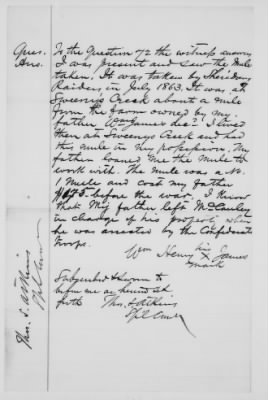 Ques.
Ans.
To the Question 72 the witness answers
I was present and saw the Mule
taken. It was taken by Sheridans
Raiders in July 1863. It was at
Sweeny's Creek about a mile
from the farm owned by my
father James. I lived
then at Sweenys Creek and had
this mule in my possession. My
father loaned me the Mule to
work with. The mule was a No.
1 Mule and cost my father
$175 before the war. I know
that My father left McCauley
in charge of his property when
he was arrested by the Confederate
troops.
Wm Henry his X mark James
Subscribed & sworn to
before me as herein set
forth Thos. S. Atkins
Spl Comr
Thos. S. Atkins
Spl Comr